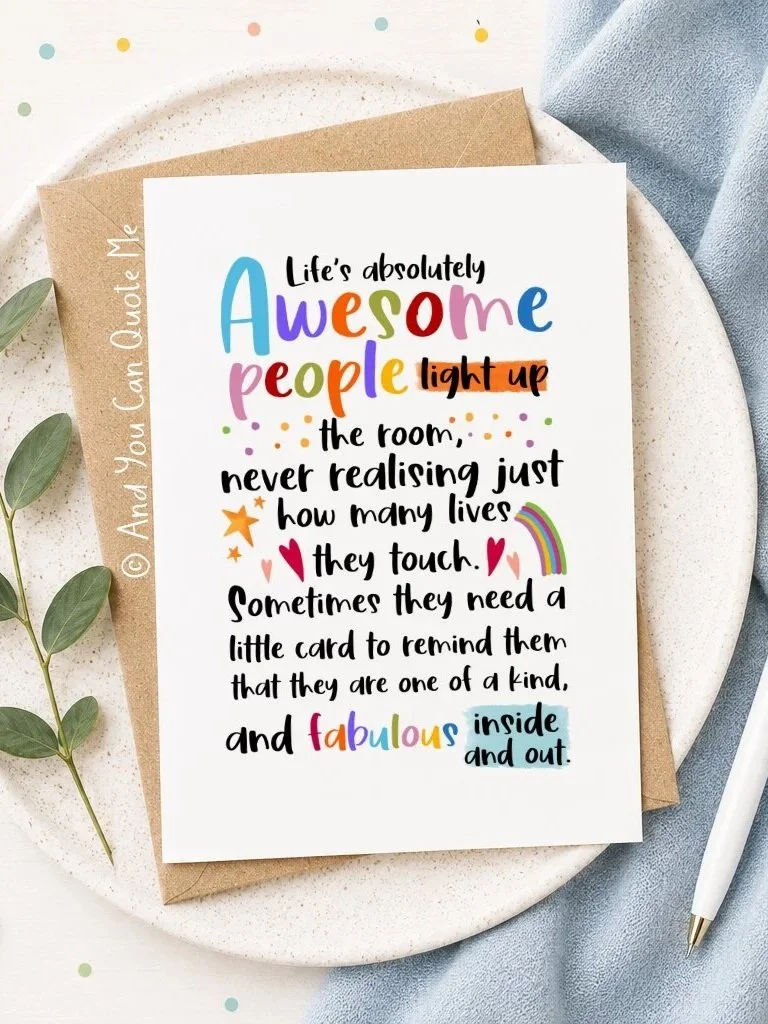 Life's absolutely
Awesome
people light up
the room,
never realising just
how many lives
they touch.
Sometimes they need a
little card to remind them
that they are one of a kind,
and fabulous inside
and out.
© And You Can Quote Me